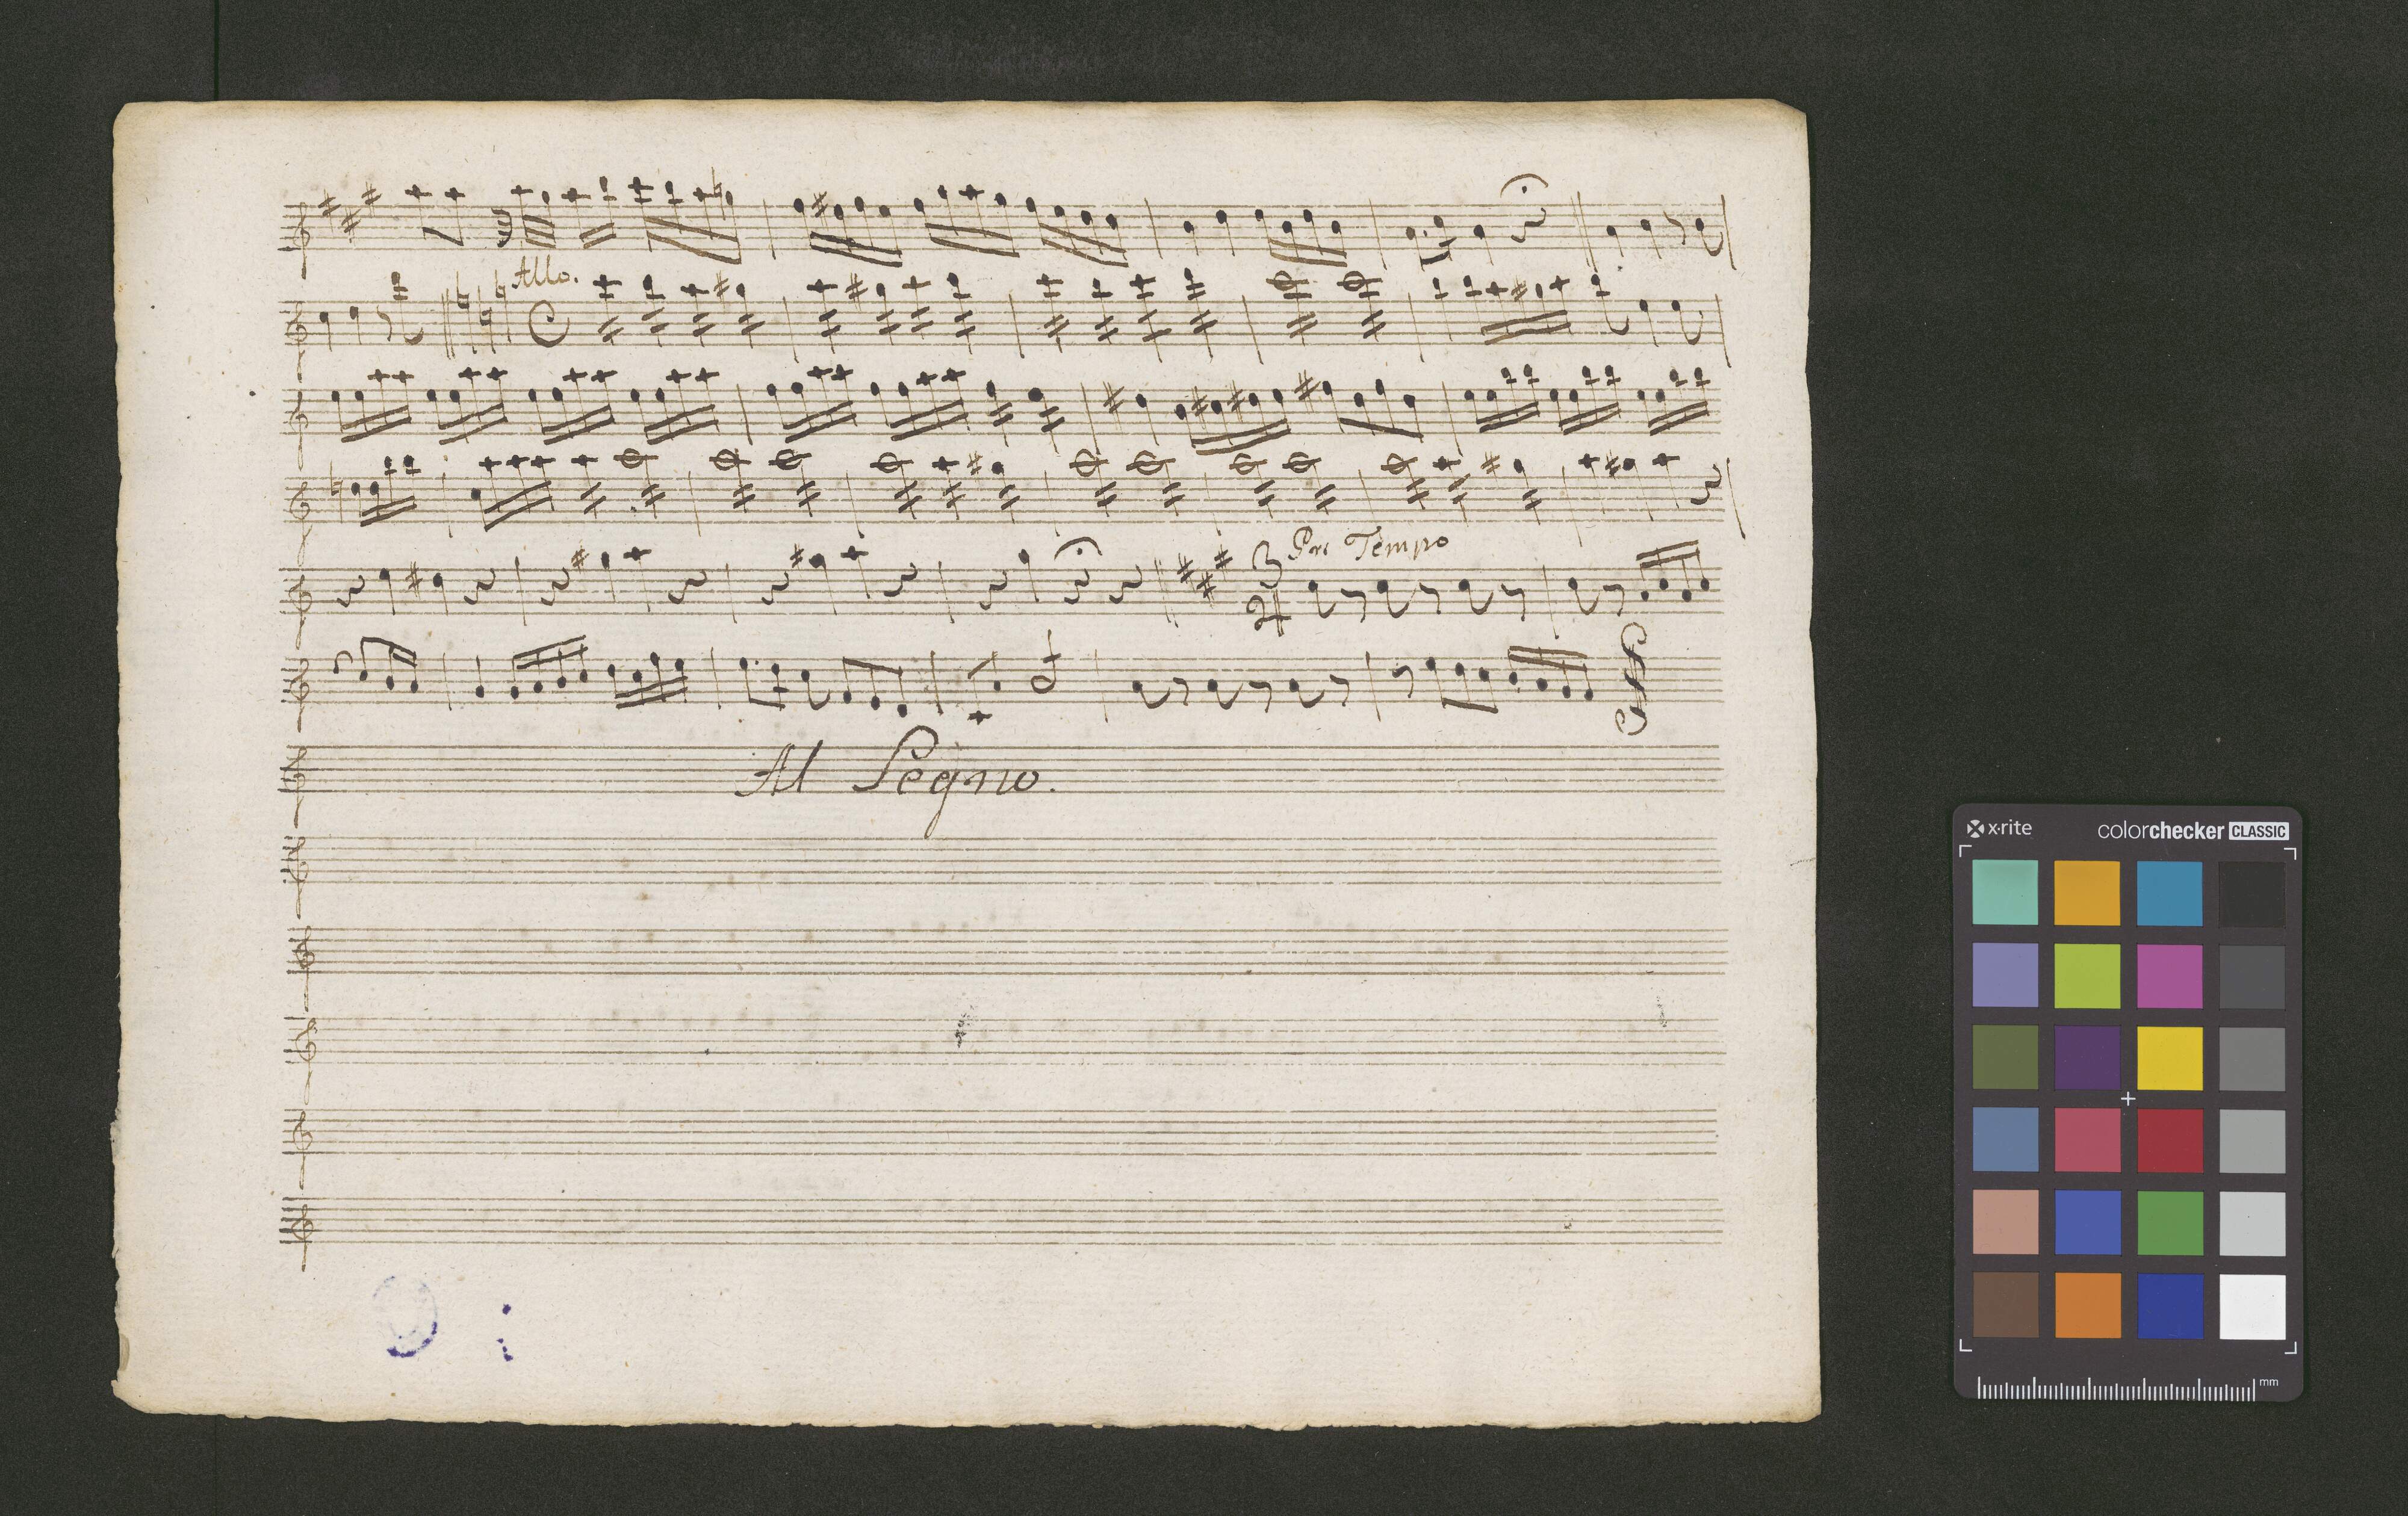 Allo.
C
Pri Tempo
3
4
Al Segno.
x·rite
colorchecker CLASSIC
mm